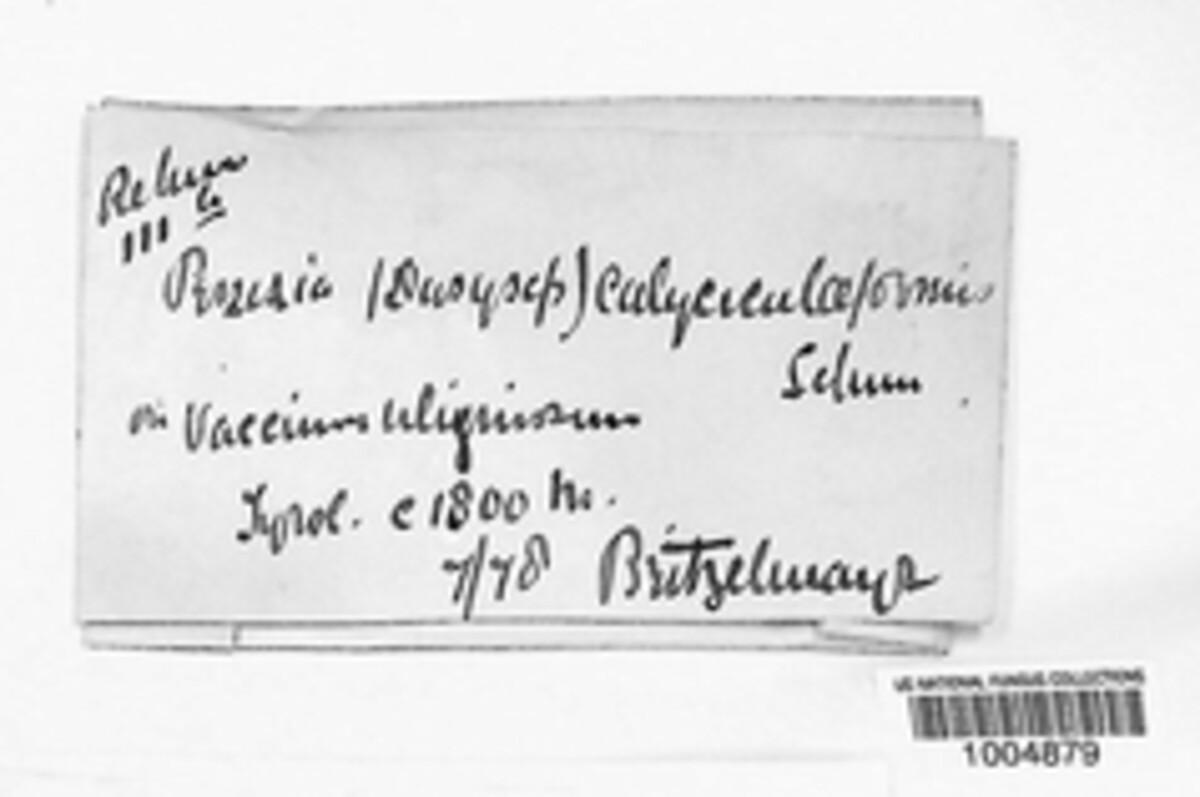 Rehm
III b
Pezizia (Dasysch) calyciculaeformis
Schum
on Vaccinium uliginosum
Tyrol. c 1800 m.
7/78 Britzelmayr
US NATIONAL FUNGUS COLLECTIONS
1004879